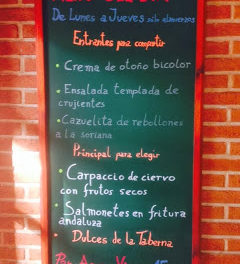 De Lunes a Jueves solo almuerzos
Entrantes para compartir
• Crema de otoño bicolor
• Ensalada templada de
crujientes
• Cazuelita de rebollones
a la soriana
Principal para elegir
• Carpaccio de ciervo
con frutos secos
• Salmonetes en fritura
andaluza
• Dulces de la Taberna